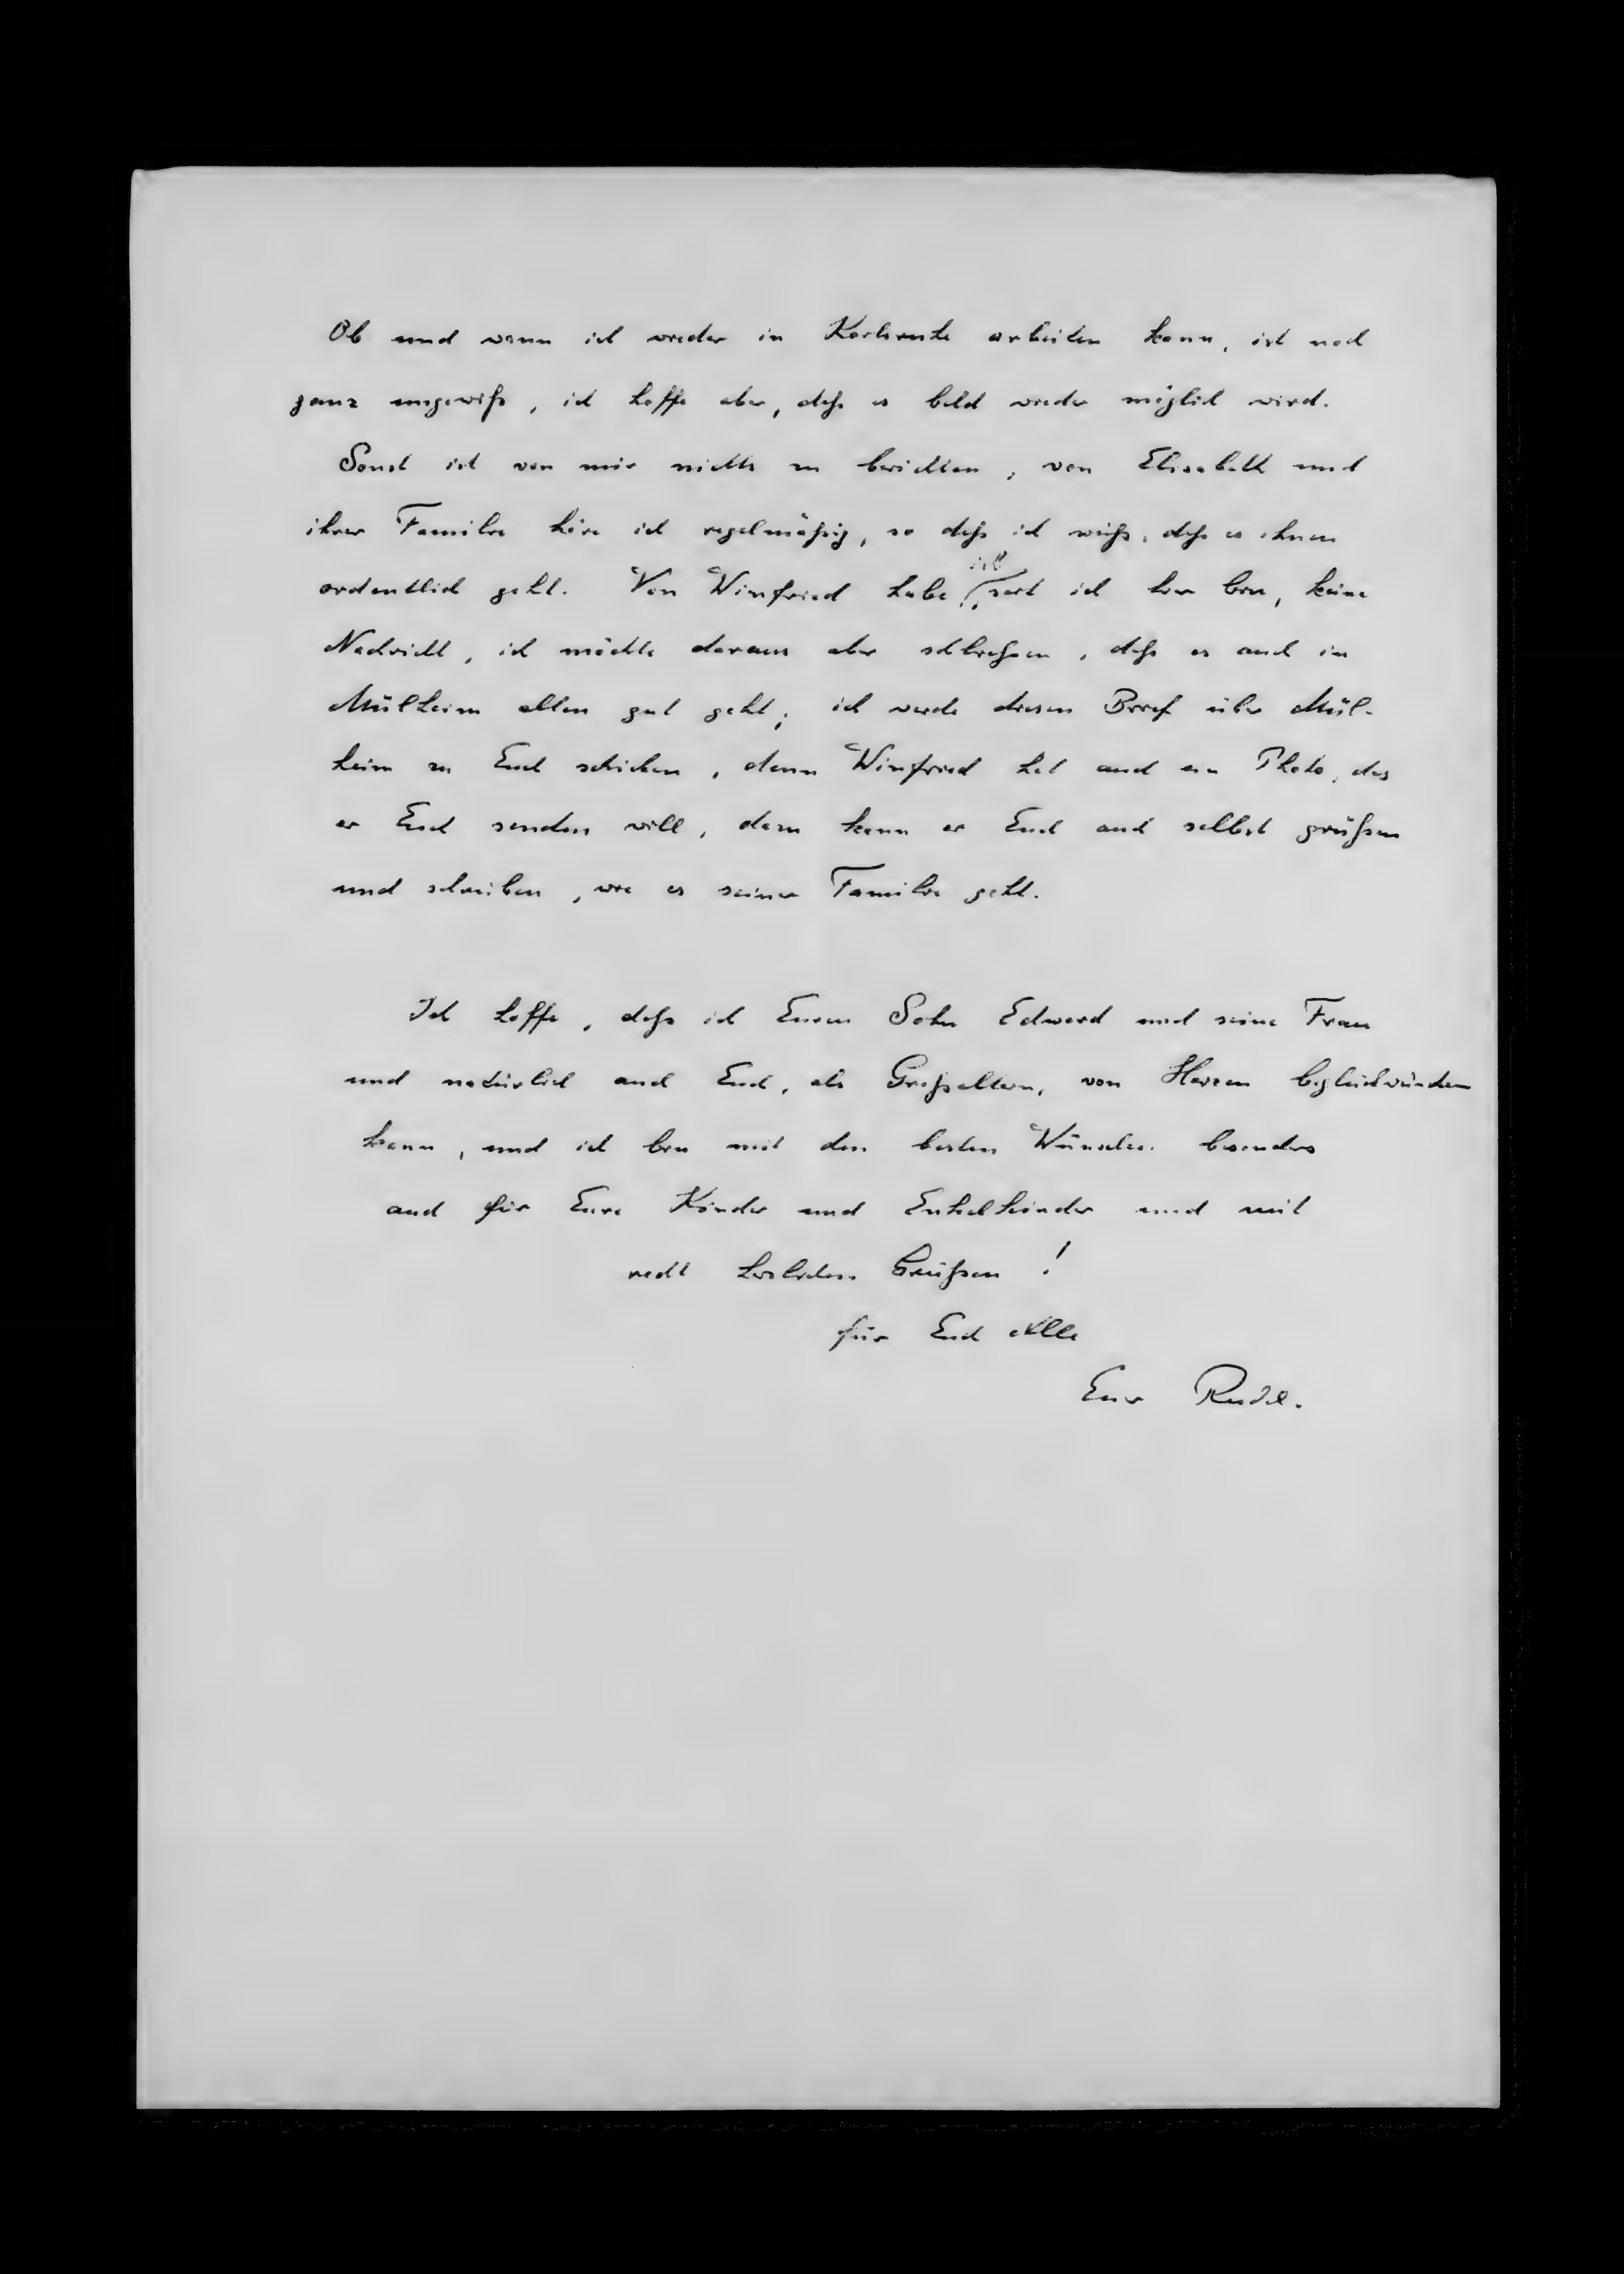 Ob und wann ich wieder in Karlsruhe arbeiten kann, ist noch
ganz ungewiß, ich hoffe aber, daß es bald wieder möglich wird.
Sonst ist von mir nichts zu berichten, von Elisabeth und
ihrer Familie höre ich regelmäßig, so daß ich weiß, daß es ihnen
ordentlich geht. Von Winfried habe ich, seit ich hier bin, keine
Nachricht, ich möchte daraus aber schließen, daß es auch in
Mülheim allen gut geht; ich werde diesen Brief über Mül-
heim zu Euch schicken, denn Winfried hat auch ein Photo, das
er Euch senden will, dann kann er Euch auch selbst grüßen
und schreiben, wie es seiner Familie geht.
Ich hoffe, daß ich Euren Sohn Edward und seine Frau
und natürlich auch Euch, als Großeltern, von Herzen beglückwünschen
kann, und ich bin mit den besten Wünschen besonders
auch für Eure Kinder und Enkelkinder und mit
recht herzlichen Grüßen!
für Euch Alle
Euer Rudi.